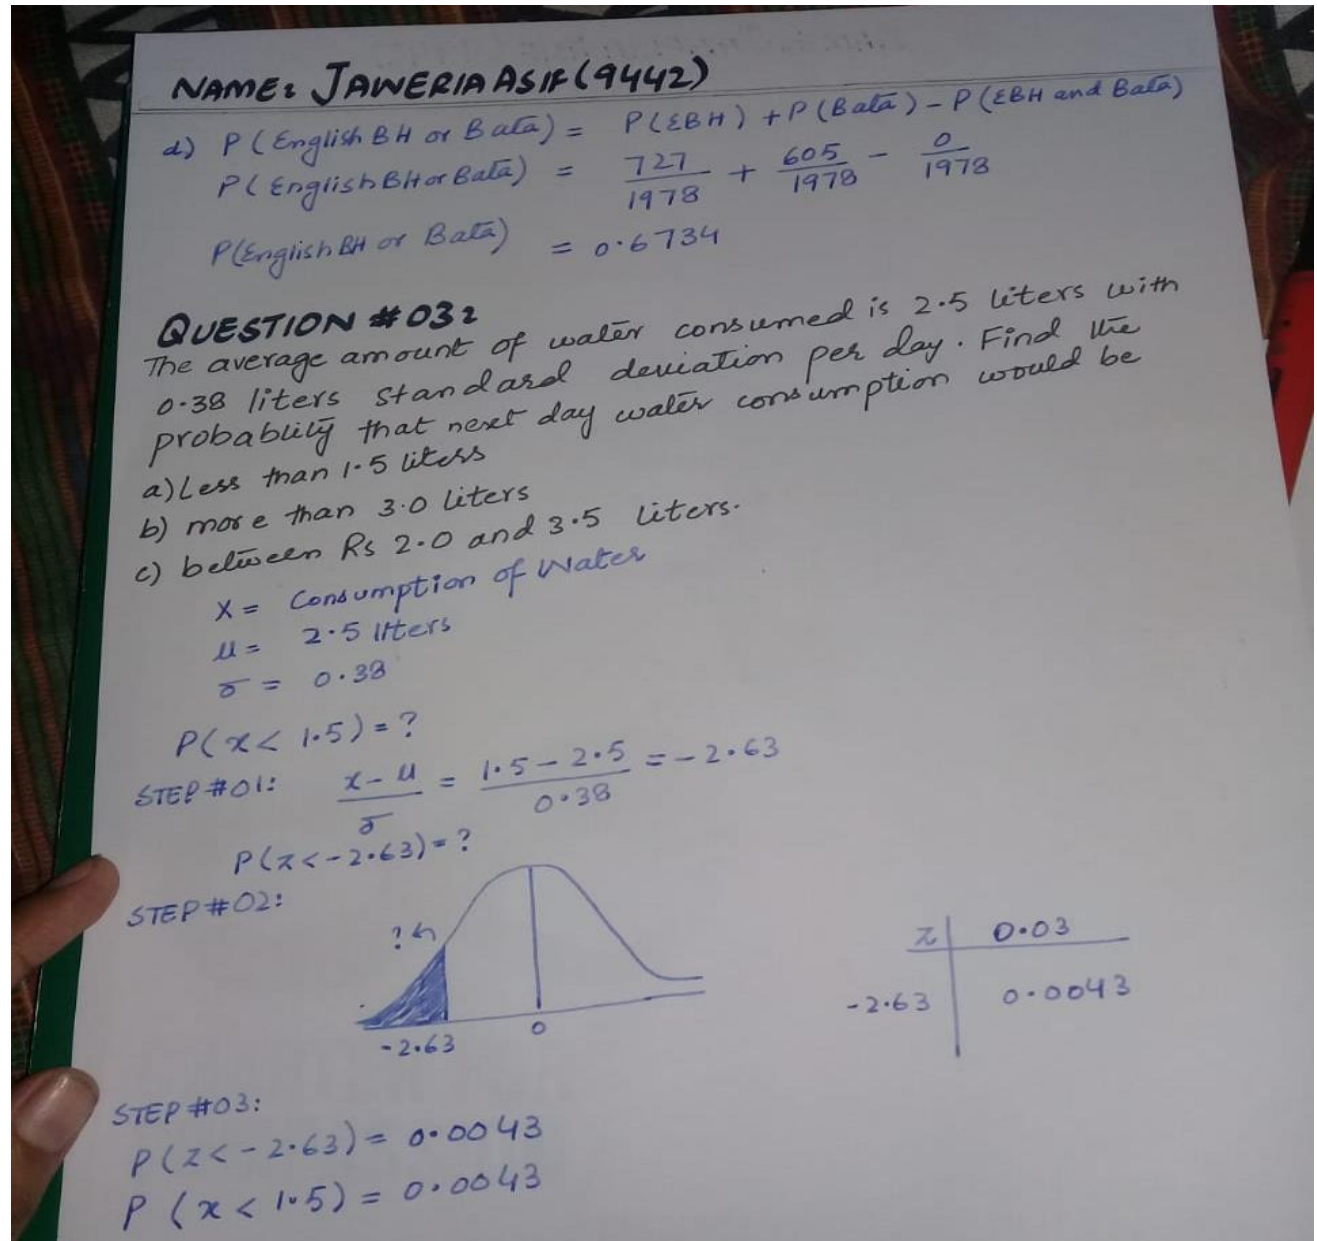 NAME: JAWERIA ASIF (9442)
d) P(English BH or Bata) = P(EBH) + P(Bata) - P(EBH and Bata)
P(English BH or Bata) = 727/1978 + 605/1978 - 0/1978
P(English BH or Bata) = 0.6734
QUESTION #03:
The average amount of water consumed is 2.5 liters with
0.38 liters standard deviation per day. Find the
probablity that next day water consumption would be
a) Less than 1.5 liters
b) more than 3.0 liters
c) between Rs 2.0 and 3.5 liters.
X = Consumption of Water
μ = 2.5 liters
σ = 0.38
P(x < 1.5) = ?
STEP #01: x-μ/σ = 1.5-2.5/0.38 = -2.63
P(z < -2.63) = ?
STEP #02:
?
-2.63 0
z 0.03
-2.63 0.0043
STEP #03:
P(z < -2.63) = 0.0043
P(x < 1.5) = 0.0043